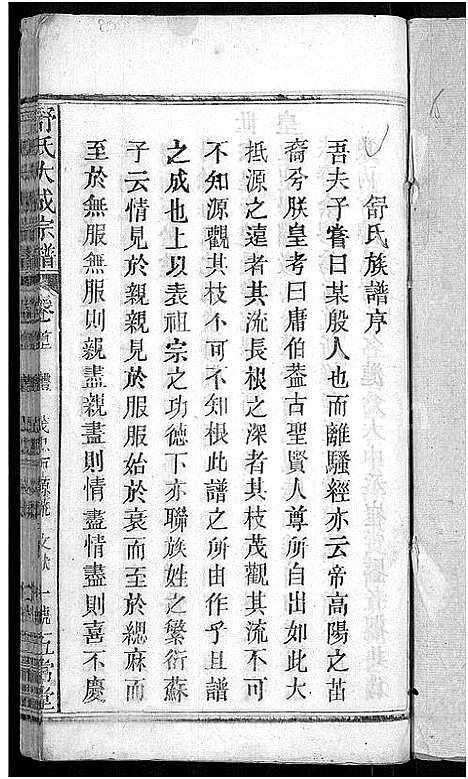 舒氏族譜序
吾夫子嘗曰某殷人也而離騷經亦云帝高陽之苗
裔兮朕皇考曰庸伯蓋古聖賢人尊所自出如此大
抵源之遠者其流長根之深者其枝茂觀其流不可
不知源觀其枝不可不知根此譜之所由作乎且譜
之成也上以表祖宗之功德下亦聯族姓之繁衍蘇
子云情見於親親見於服服始於衰而至於緦麻而
至於無服無服則親盡親盡則情盡情盡則喜不慶
舒氏大成宗譜
卷之首